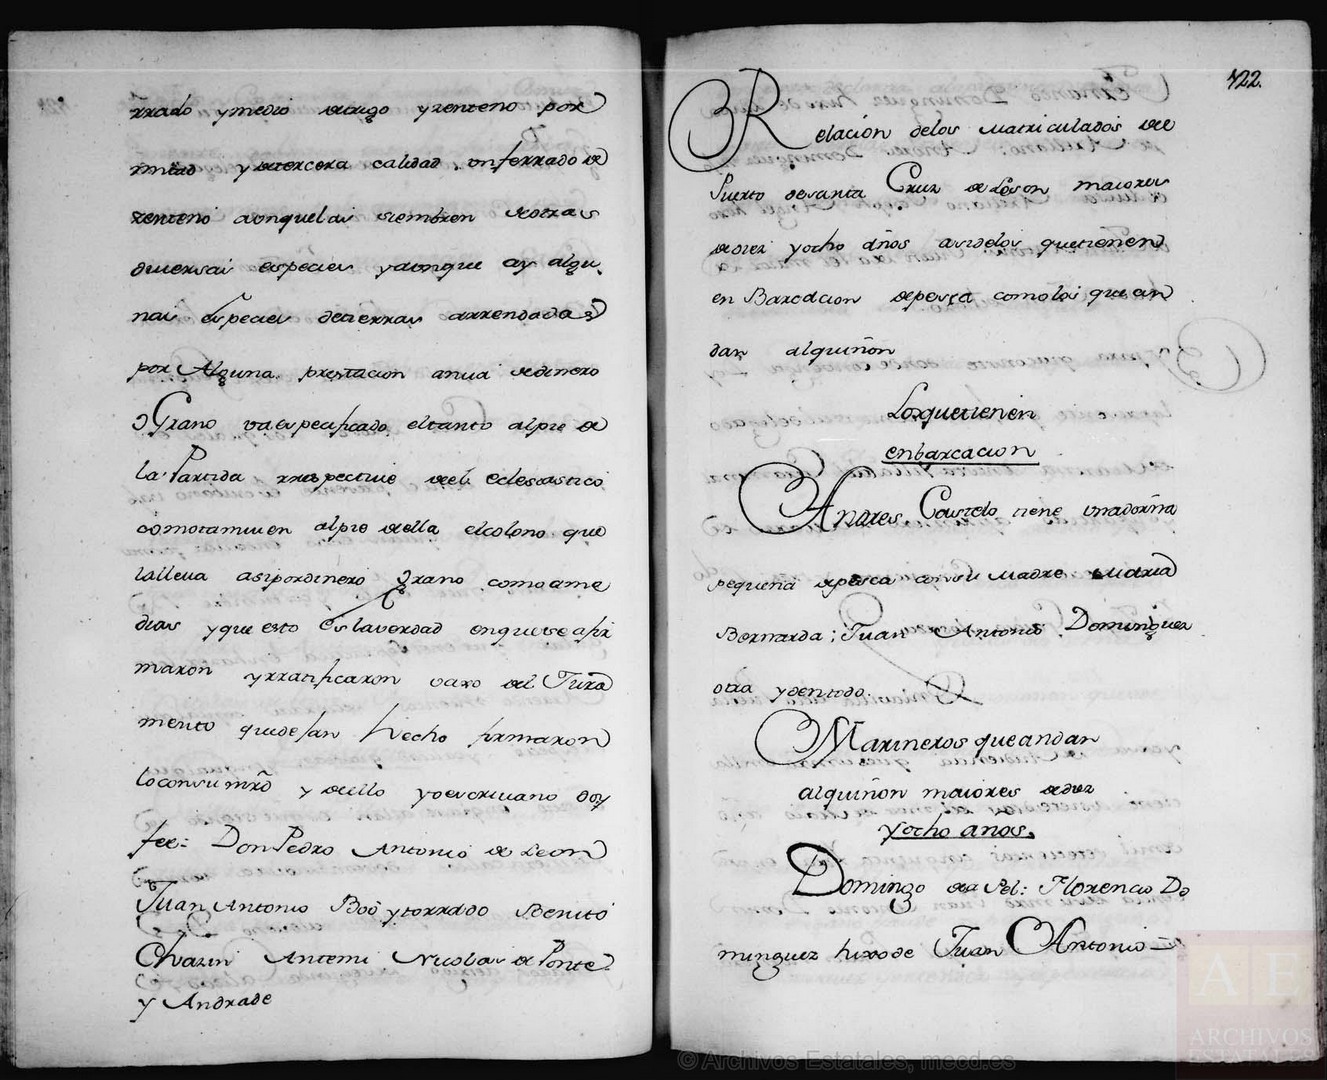 rrado ymedio detrigo yzenteno por
mitad ydetercera calidad, unferrado de
zenteno aonquelas siembren deotras
diversas especies yaunque ay algu
nas especies detierras arrendadas
por Alguna prestacion anua dedinero
o Grano vaespecificado, eltanto alpie de
la Partida rrespective del eclesiastico
comotamvien alpie della elcolono que
lalleva asipordinero Grano como ame
dias yque esto eslaverdad enquese afir
maron yrratificaron vaxo del Jura
mento quedejan hecho firmaron
loconsumrd y dello yoescrivano doy
fee: Don Pedro Antonio de Leon
Juan Antonio Boo ytorrado Benito
Chazin Antemi Nicolas de Ponte
y Andrade
722.
Relacion delos Matriculados del
Puerto desanta Cruz de Leson maiores
dediez yocho años asidelos quetienen
en Barcacion depesca comolos que an
dan alquiñon
Losquetienen
enbarcacion
Andres Coustelo tiene unadorña
pequeña depesca consu Madre Maria
Bernarda; Juan Antonio Dominguez
otra ydentodo.
Marineros queandan
alquiñon maiores dediez
yocho años.
Domingo dea Pol: Florencio Do
minguez hixode Juan Antonio
© Archivos Estatales, mecd.es
AE
ARCHIVOS
ESTATALES